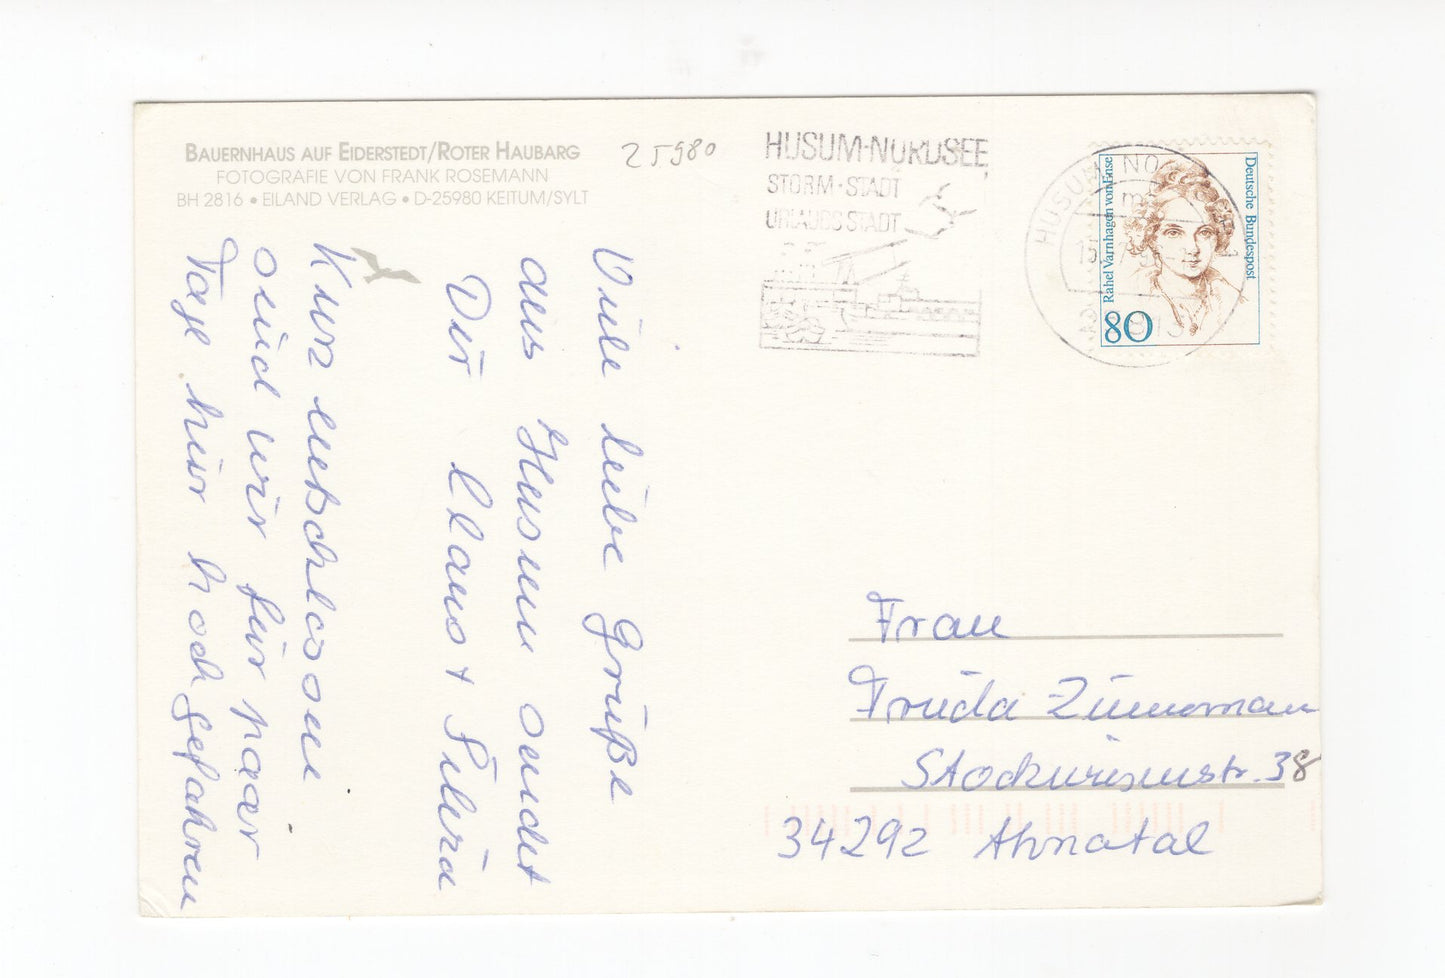 BAUERNHAUS AUF EIDERSTEDT/ROTER HAUBARG
FOTOGRAFIE VON FRANK ROSEMANN
BH 2816 • EILAND VERLAG • D-25980 KEITUM/SYLT
25980
HUSUM-NORDSEE
STORM·STADT
URLAUBSSTADT
HUSUM, NO
Rahel Varnhagen von Ense
Deutsche Bundespost
80
Viele liebe Grüße
aus Husum sendet
Dir Claus + Silvia
Kurz entschlossen
sind wir für paar
Tage hier hochgefahren
Frau
Frieda Zimmermann
Stockwiesenstr. 38
34292 Ahnatal